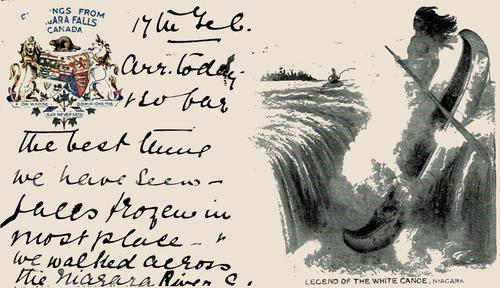 NGS FROM
ARA FALLS
CANADA
ON WHOSE DOMINIONS THE
SUN NEVER SETS
17th Feb.
Arr. today
+ so far
the best time
we have seen -
falls frozen in
most place - "
we walked across
the Niagara River C.
LEGEND OF THE WHITE CANOE, NIAGARA